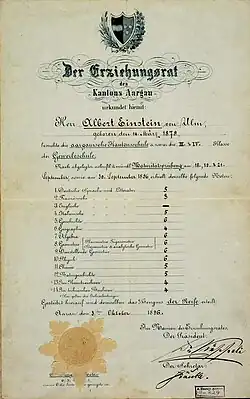 Der Erziehungsrat
des
Kantons Aargau
urkundet hiemit:
Herr Albert Einstein von Ulm,
geboren den 14. März 1879,
besuchte die aargauische Kantonsschule u. zwar die III. & IV. Klasse
der Gewerbeschule.
Nach abgelegter schriftl. & mündl. Maturitätsprüfung am 18., 19. & 21.
September, sowie am 30. September 1896, erhielt derselbe folgende Noten:
1. Deutsche Sprache und Litteratur 5
2. Französische 3
3. Englische —
4. Italienische 5
5. Geschichte 6
6. Geographie 4
7. Algebra 6
8. Geometrie 6
9. Darstellende Geometrie 6
10. Physik 6
11. Chemie 5
12. Naturgeschichte 5
13. Im Kunstzeichnen 4
14. Im technischen Zeichnen 4
Gestützt hierauf wird demselben das Zeugnis der Reife erteilt.
Aarau den 3ten Oktober 1896.
Im Namen des Erziehungsrates,
Der Präsident:
Der Sekretär: